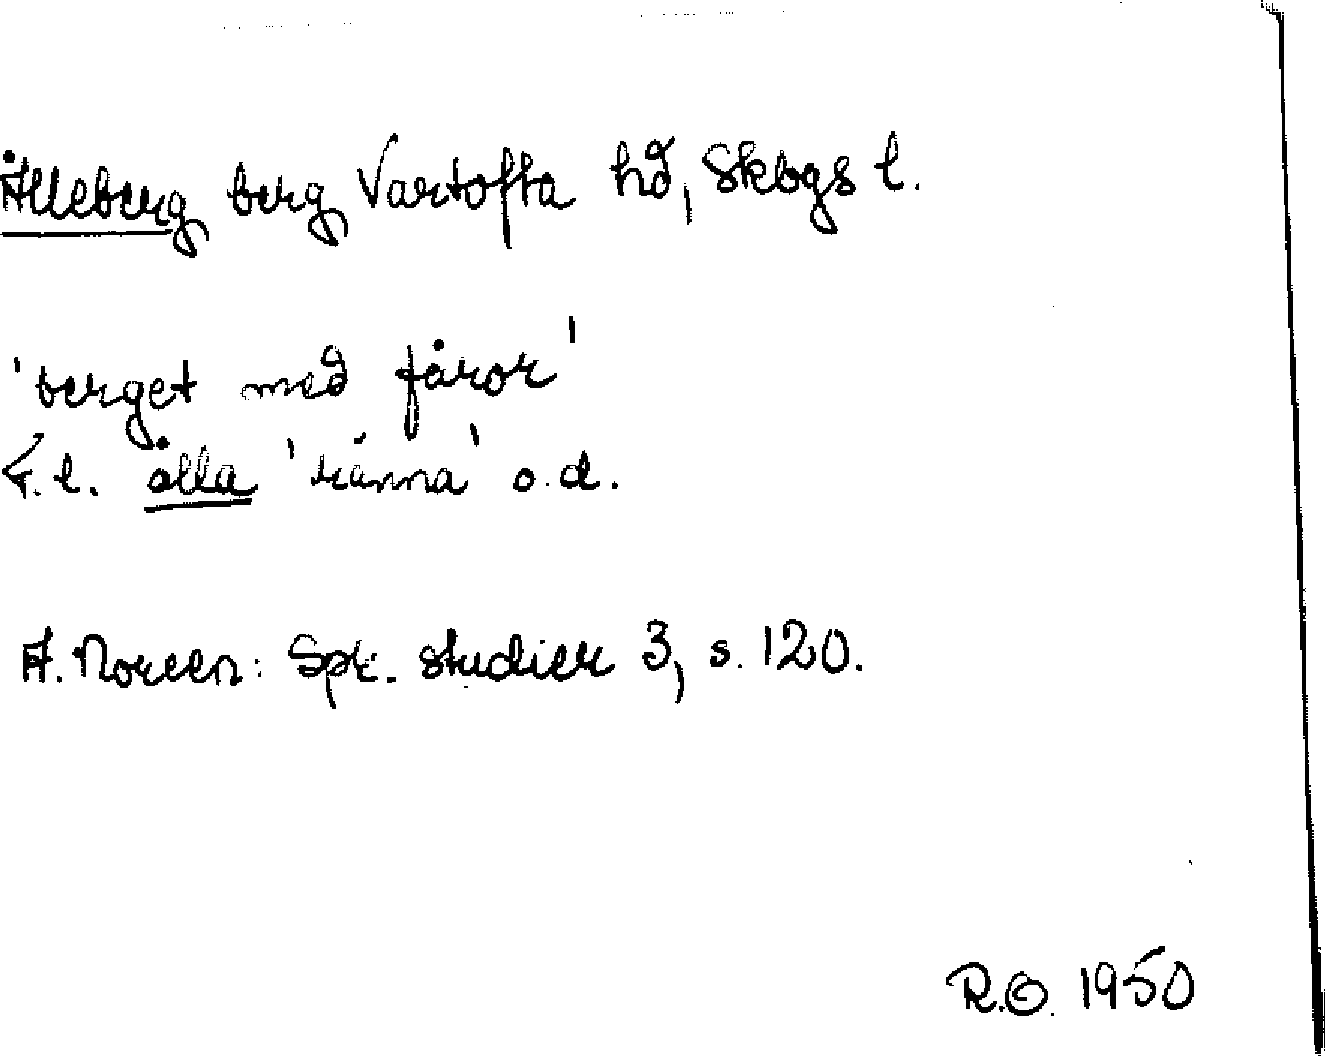 Ålleberg berg Vartofta hd, Skbgs l.
'berget med fåror'
F.l. ålla 'ränna' o.d.
A. Noreen: Spr. studier 3, s. 120.
R.O. 1950